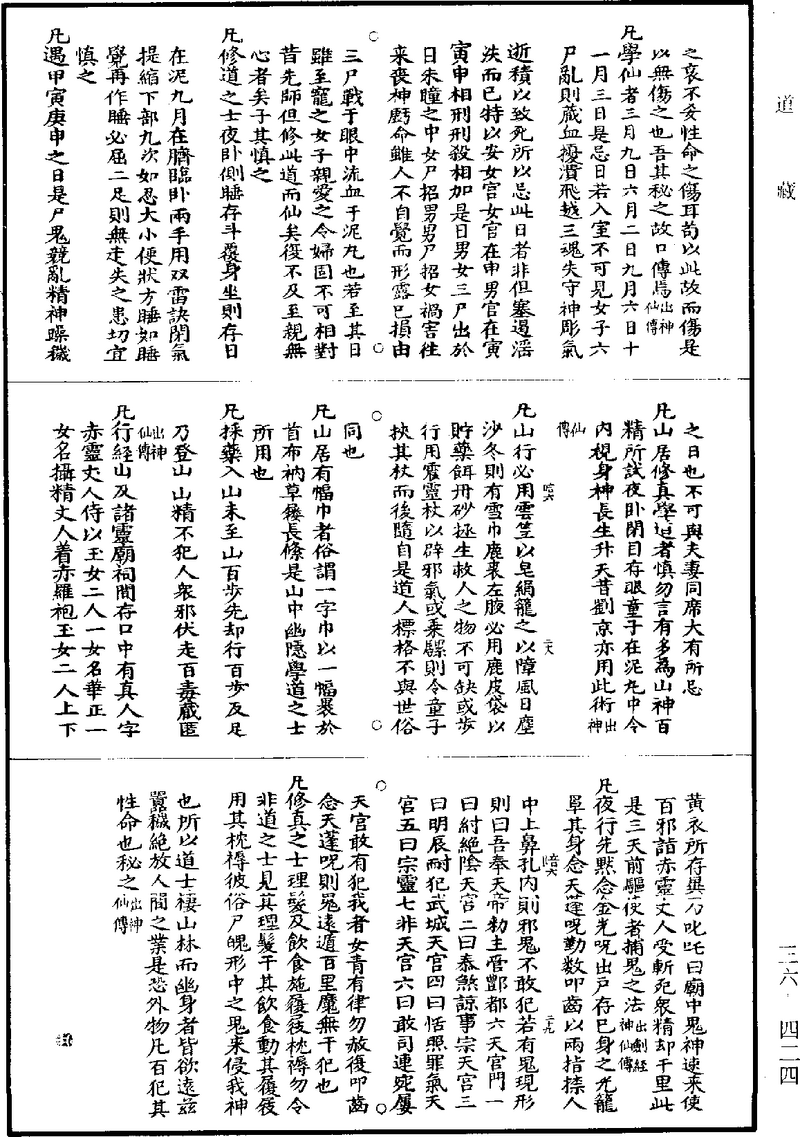 道藏
三六・四二四
之哀不妥性命之傷耳苟以此故而傷是
以無傷之也吾其秘之故口傳焉出神仙傳
凡學仙者三月九日六月二日九月六日十
一月三日是忌日若入室不可見女子六
尸亂則蔵血擾潰飛越三魂失守神彫氣
逝積以致死所以忌此日者非但塞遏滛
泆而已特以安女宫女宫在申男宫在寅
寅申相刑刑殺相加是日男女三尸出於
日朱瞳之中女尸招男男尸招女禍害徃
来喪神虧命雖人不自覺而形露已損由
三尸戰于眼中流血于泥丸也若至其日
雖至寵之女子親愛之令婦固不可相對
昔先師但修此道而仙矣復不及至親無
心者矣子其慎之
凡修道之士夜卧側睡存斗覆身坐則存日
在泥九月在臍臨卧兩手用双雷訣閉氣
提縮下部九次如忍大小便狀方睡如睡
覺再作睡必屈二足則無走失之患切宜
慎之
凡遇甲寅庚申之日是尸鬼競亂精神躁穢
之日也不可與夫妻同席大有所忌
凡山居修真學道者慎勿言有多為山神百
精所試夜卧閉目存眼童子在泥丸中令
内視身神長生升天昔劉京亦用此術出神
仙傳
凡山行必用雲笠以皂絹籠之以障風日塵
沙冬則有雪巾鹿裘左腋必用鹿皮袋以
貯藥餌丹砂拯生救人之物不可缺或步
行用震靈杖以辟邪氣或乘騾則令童子
挾其杖而後隨自是道人標格不與世俗
同也
凡山居有幅巾者俗謂一字巾以一幅裹於
首布衲草䋲長絛是山中幽隱學道之士
所用也
凡採藥入山未至山百步先却行百步及足
乃登山山精不犯人衆邪伏走百毒蔵匿
出神仙傳
凡行經山及諸靈廟祠間存口中有真人字
赤靈丈人侍以玉女二人一女名華正一
女名攝精丈人着赤羅袍玉女二人上下
黄衣所存畢乃叱咤曰廟中鬼神速来使
百邪詣赤靈丈人受斬死衆精却千里此
是三天前驅使者捕鬼之法出劍經神仙傳
凡夜行先黙念金光呪出戸存已身之光籠
罩其身念天蓬呪勤數叩齒以兩指捺人
中上鼻孔内則邪鬼不敢犯若有鬼現形
則曰吾奉天帝勑主管酆都六天宫門一
曰紂絶隂天宫二曰泰煞諒事宗天宫三
曰明辰耐犯武城天宫四曰恬照罪氣天
宫五曰宗靈七非天宫六曰敢司連宛屢
天宫敢有犯我者女青有律勿赦復叩齒
念天蓬呪則鬼逺遁百里魔無干犯也
凡修真之士理髮及飲食施履屐枕褥勿令
非道之士見其理髮干其飲食動其履屐
用其枕褥彼俗尸魄形中之鬼来侵我神
也所以道士棲山林而幽身者皆欲逺兹
囂穢絶放人間之業是恐外物凡百犯其
性命也秘之出神仙傳